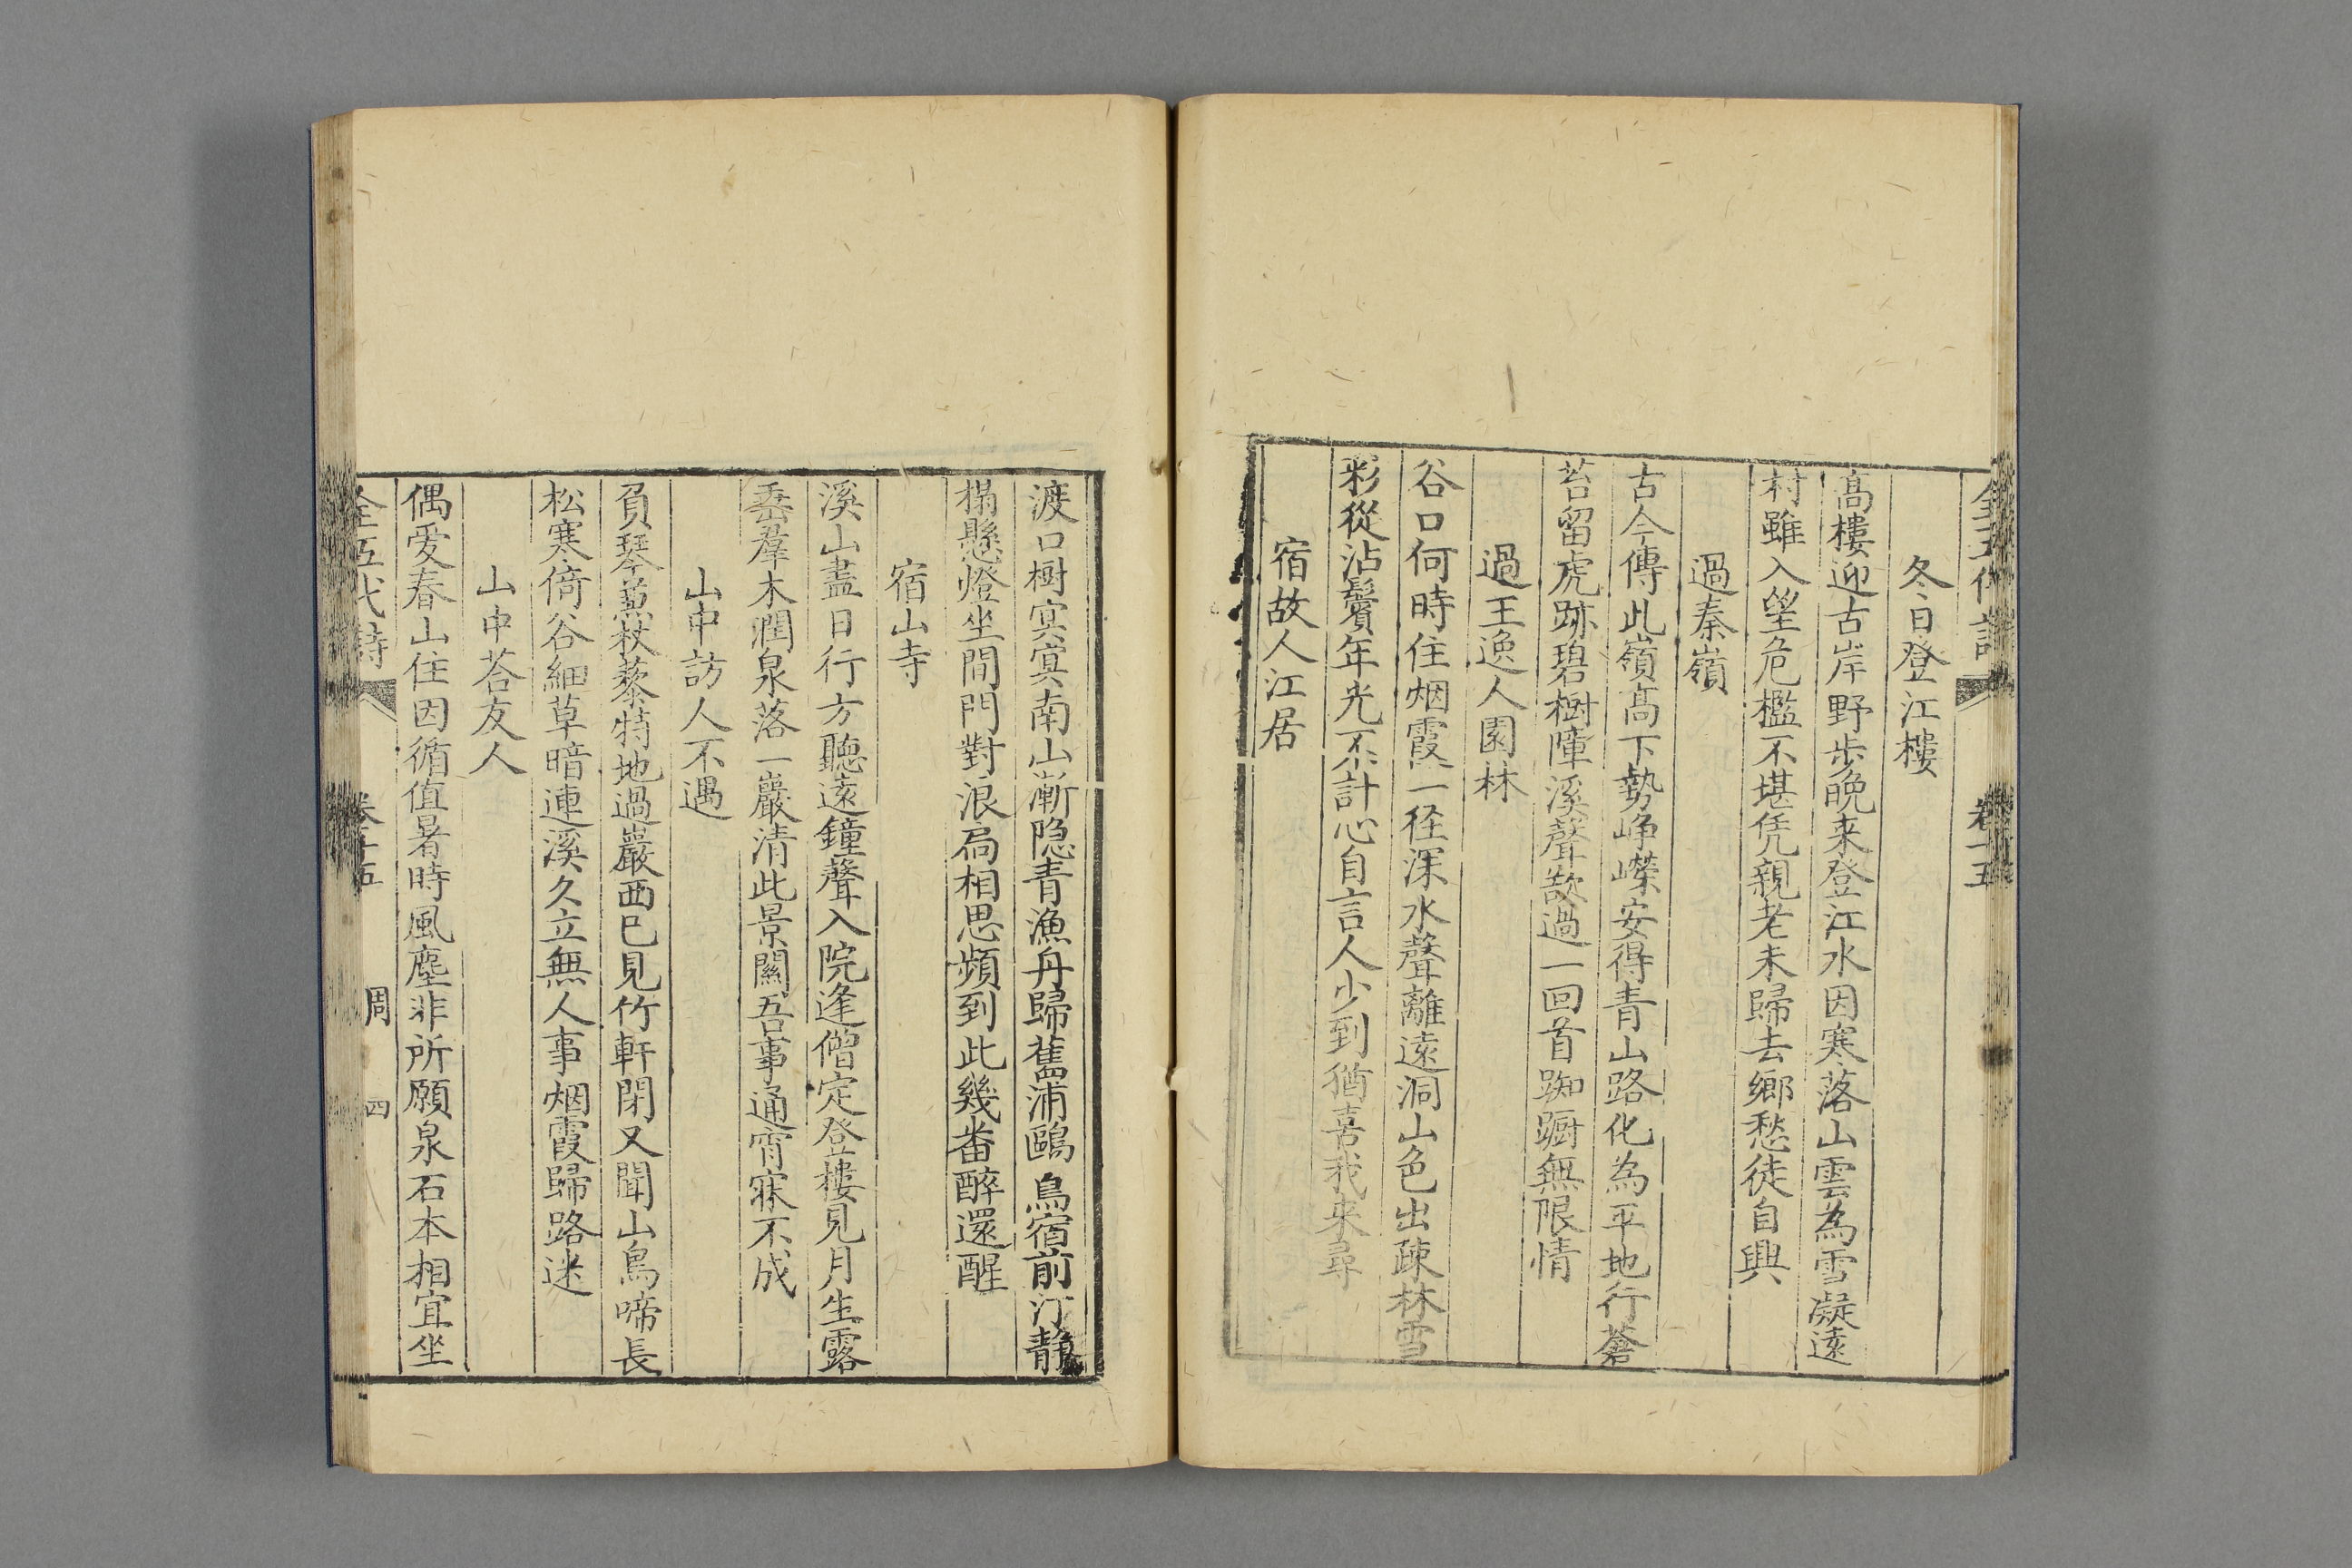 全五代詩 卷十五
冬日登江樓
高樓迎古岸野步晩来登江水因寒落山雲為雪凝遠
村雖入望危檻不堪凭親老未歸去鄉愁徒自興
過秦嶺
古今傳此嶺高下勢崢嶸安得青山路化為平地行蒼
苔留虎跡碧樹障溪聲欲過一回首踟躕無限情
過王逸人園林
谷口何時住烟霞一径深水聲離遠洞山色出疎林雪
彩從沾鬢年光不計心自言人少到猶喜我来尋
宿故人江居
渡口樹㝠㝠南山漸隐青漁舟歸舊浦鷗鳥宿前汀静
榻懸燈坐間門對浪扃相思頻到此幾畨醉還醒
宿山寺
溪山盡日行方聽遠鐘聲入院逢僧定登樓見月生露
垂羣木潤泉落一巖清此景關吾事通宵寐不成
山中訪人不遇
負琴蒸杖藜特地過巖西已見竹軒閉又聞山鳥啼長
松寒倚谷細草暗連溪久立無人事烟霞歸路迷
山中荅友人
偶愛春山住因循值暑時風塵非所願泉石本相宜坐
全五代詩 卷十五 周 四